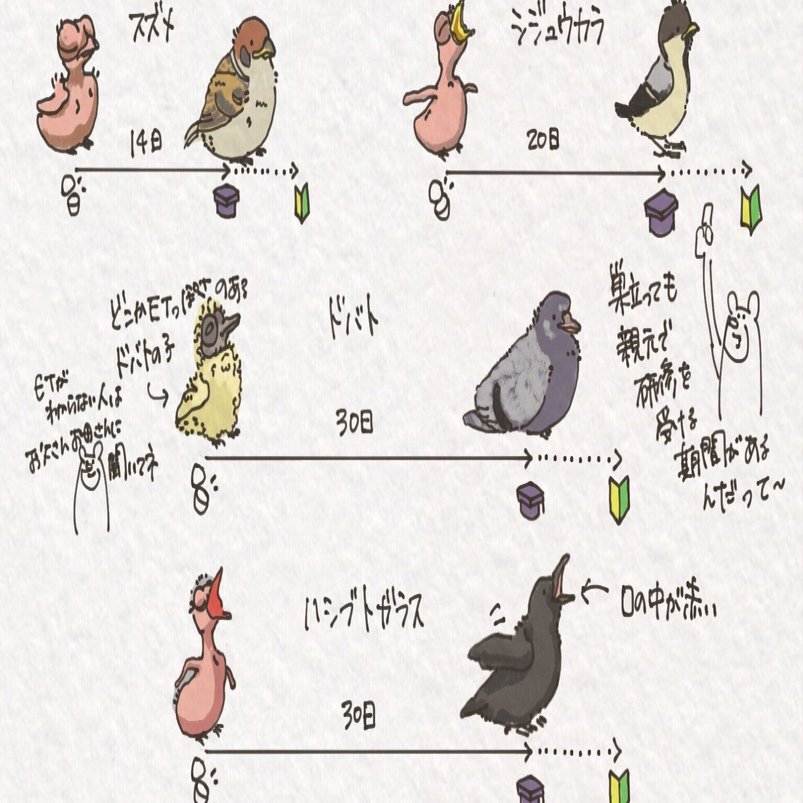 スズメ
14日
シジュウカラ
20日
どこかETっぽさのある
ドバトの子
ETが
わからない人は
お父さんお母さんに
聞いてネ
ドバト
30日
巣立っても
親元で
研修を
受ける
期間がある
んだって～
ハシブトガラス
30日
口の中が赤い